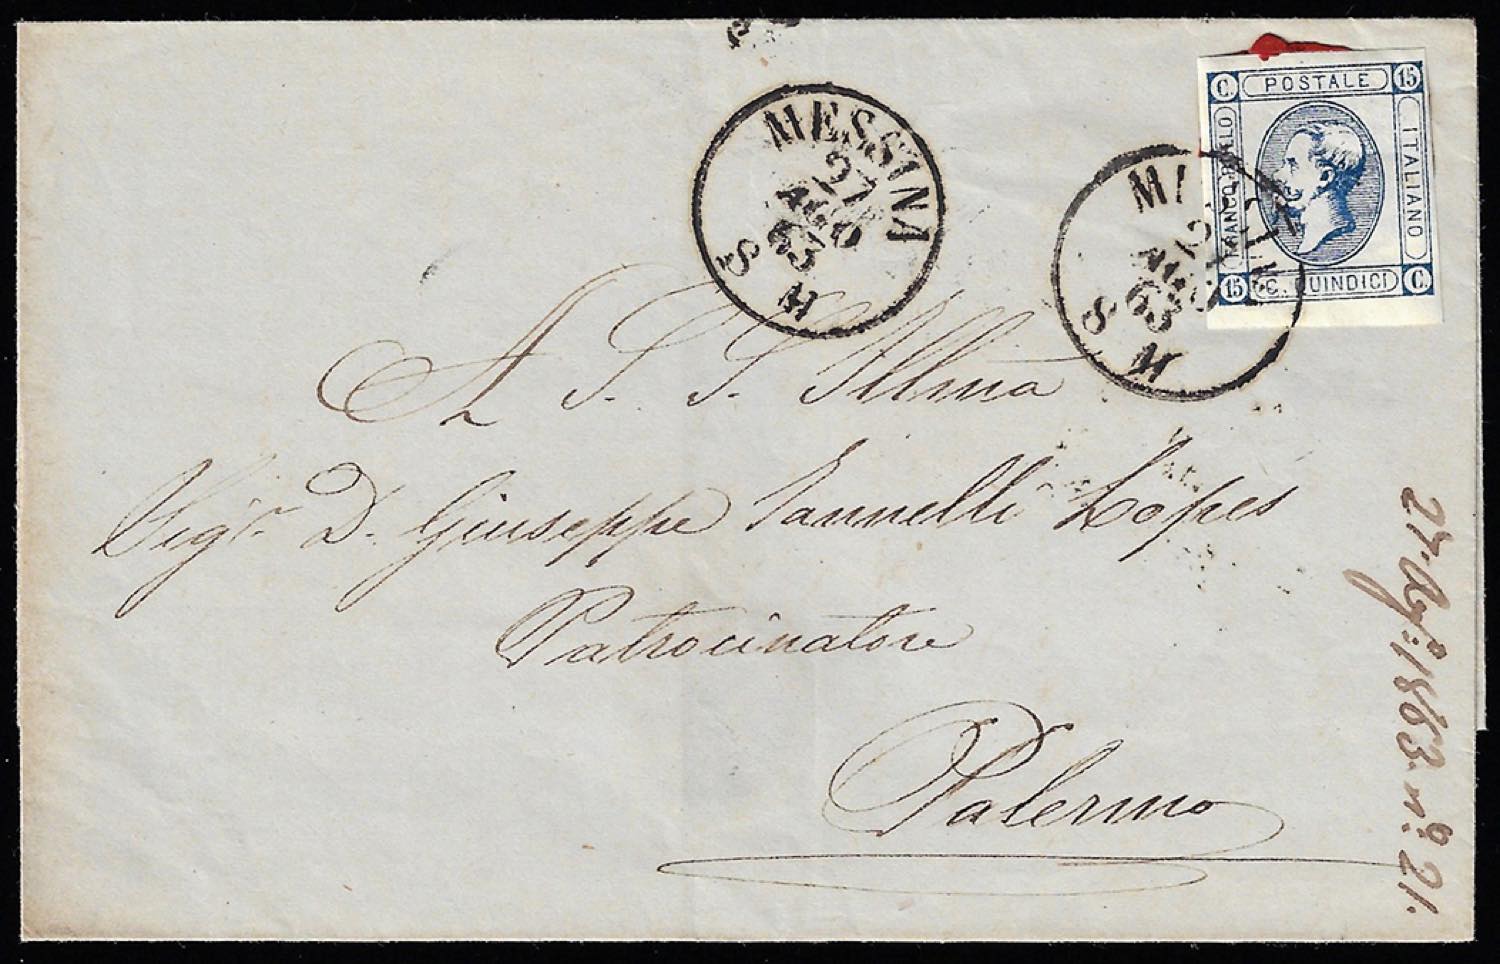 C. POSTALE 15
FRANCO BOLLO
ITALIANO
15 C. QUINDICI C.
MESSINA
27
AGO
63
S M
AGO
63
S M
A S. S. Illma
Sigr. D. Giuseppe Iannelli Lopes
Patrocinatore
Palermo
27. Ago: 1863. nº. 21.